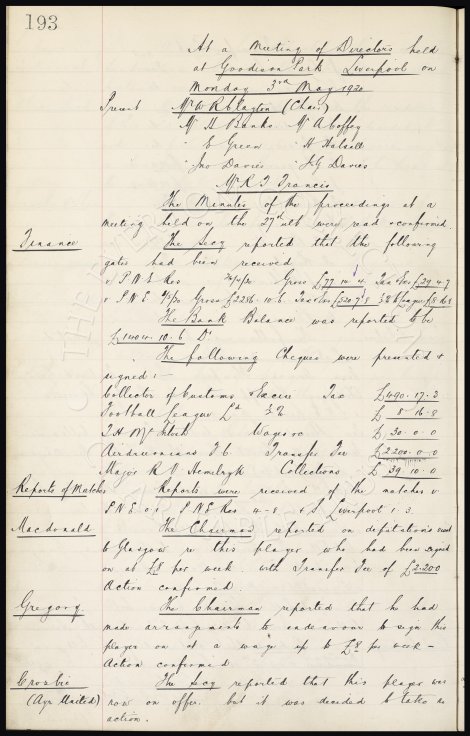 193
At a Meeting of Directors held
at Goodison Park Liverpool on
Monday 3rd May 1920
Present Mr W R Clayton (Chair)
Mr H Banks Mr A Coffey
" E Green " H Halsall
" Jno Davies " J G Davies
Mr R T Francis
The Minutes of the proceedings at a
meeting held on the 27th ult were read & confirmed.
Finance The Secy reported that the following
gates had been received
v P.N.E Res 24/4/20 Gross £77.14.4 Tax £29.4.7
v P.N.E Gross £2286.10.6 Tax £520.7.8 League £8.16.8
The Bank Balance was reported to be
£1404.10.6 Dr
The following Cheques were presented &
signed :-
Collector of Customs & Excise Tax £490.17.3
Football League Ld £8.16.8
T H McIntosh Wages &c £30.0.0
Airdrieonians F C Transfer Fee £2200.0.0
Major R V Hemelryk Collections £39.10.0
Reports of Matches Reports were received of the matches v
P.N.E P.N.E Res 4-0 & Liverpool 1.3.
Macdonald The Chairman reported on deputations sent
to Glasgow re this player who had been signed
on at £8 per week with Transfer Fee of £2200
Action confirmed
Gregory The Chairman reported that he had
made arrangements to endeavour to sign this
player on at a wage up to £8 per week -
Action confirmed
Crosbie The Secy reported that this player was
(Ayr United) now on offer, but it was decided to take no
action.